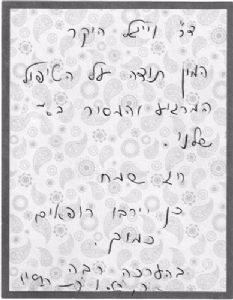 ד"ר וייגל היקר
המון תודה על הטיפול
המרגיע והמסור ב
שלנו.
חג שמח
כן יירבו רופאים
כמוך.
בהערכה רבה